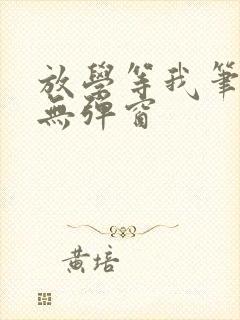 放學等我筆
無彈窗
黃培